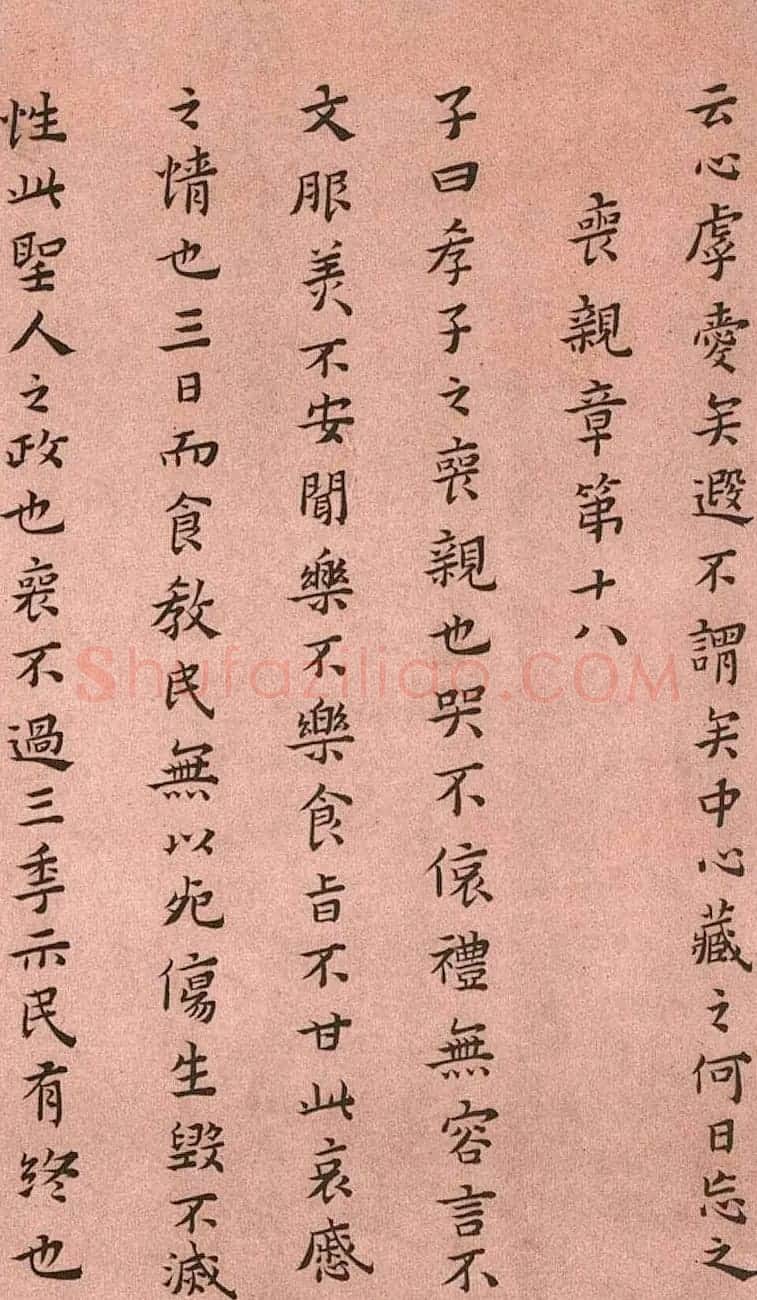 云心虖愛矣遐不謂矣中心藏之何日忘之
喪親章第十八
子曰孝子之喪親也哭不偯禮無容言不
文服美不安聞樂不樂食旨不甘此哀慼
之情也三日而食教民無以死傷生毀不滅
性此聖人之政也喪不過三年示民有終也
Shufaziliao.COM